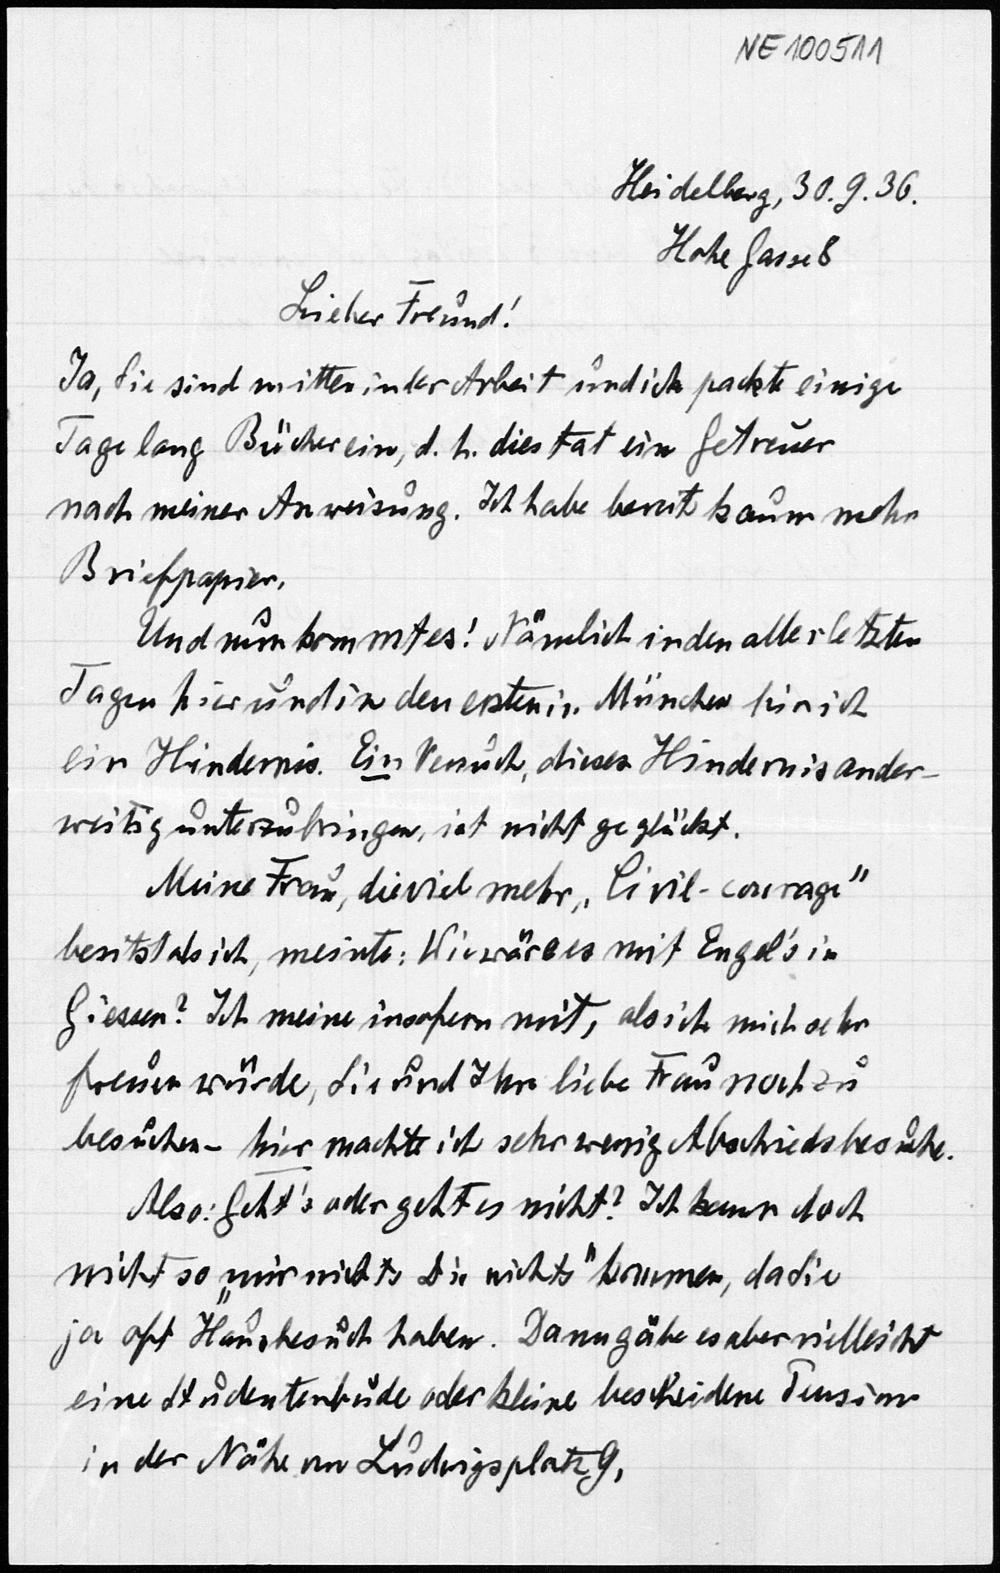 NE 100511
Heidelberg, 30.9.36.
Hohe Gasse 8
Lieber Freund!
Ja, Sie sind mitten in der Arbeit und ich packte einige
Tage lang Bücher ein, d. h. dies tat ein Getreuer
nach meiner Anweisung. Ich habe bereits kaum mehr
Briefpapier.
Und nun kommt es! Nämlich in den allerletzten
Tagen hier und in den ersten in München bin ich
ein Hindernis. Ein Versuch, dieses Hindernis ander-
weitig unterzubringen, ist nicht geglückt.
Meine Frau, die viel mehr „Civil-courage"
besitzt als ich, meinte: Wie wäre es mit Engel's in
Giessen? Ich meine insofern mit, als ich mich sehr
freuen würde, Sie und Ihre liebe Frau noch zu
besuchen - hier machte ich sehr wenig Abschiedsbesuche.
Also: Geht's oder geht es nicht? Ich kann doch
nicht so „mir nichts Dir nichts" kommen, da Sie
ja oft Hausbesuch haben. Dann gäbe es aber vielleicht
eine Studentenbude oder kleine bescheidene Pension
in der Nähe von Ludwigsplatz 9,